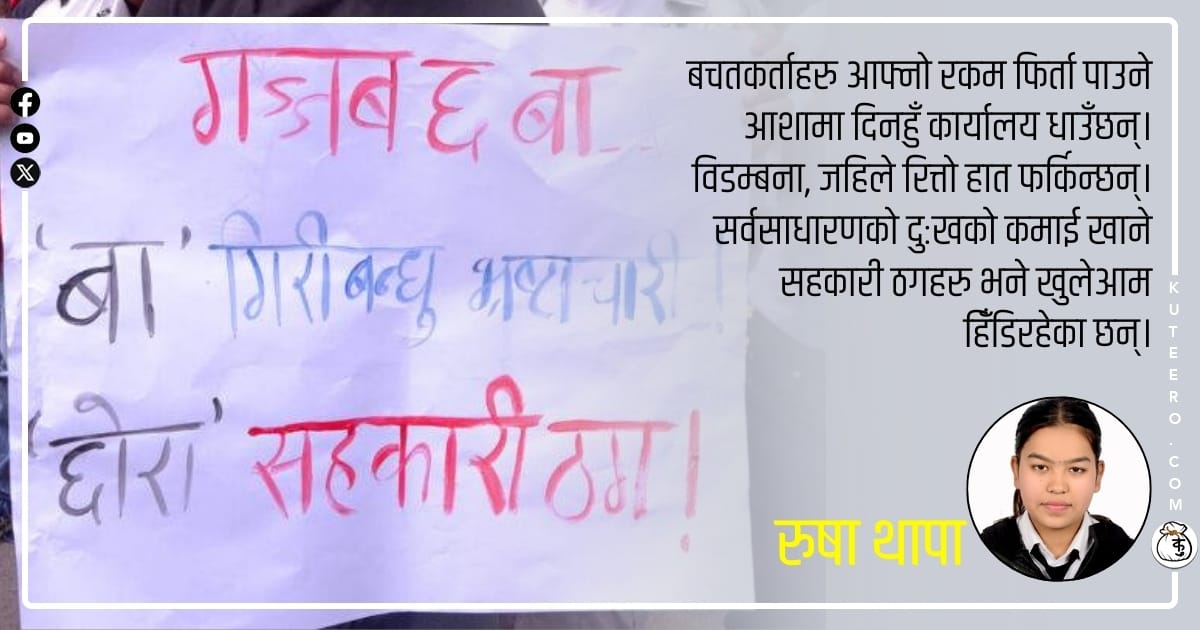 गज्जब छ बा...
'बा' गिरीबन्धु भ्रष्टाचारी !
'छोरा' सहकारी ठग !
बचतकर्ताहरु आफ्नो रकम फिर्ता पाउने
आशामा दिनहुँ कार्यालय धाउँछन्।
विडम्बना, जहिले रित्तो हात फर्किन्छन्।
सर्वसाधारणको दुःखको कमाई खाने
सहकारी ठगहरु भने खुलेआम
हिँडिरहेका छन्।
रुषा थापा
KUTEERO.COM
कु